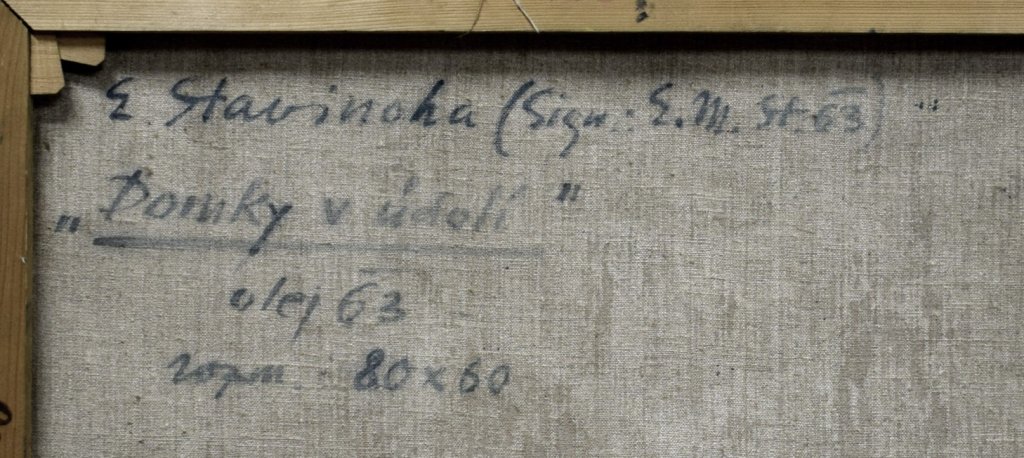 E. Stavinoha (Sign.: E. M. St. 63)
„Domky v údolí"
olej 63
rozm. 80x60